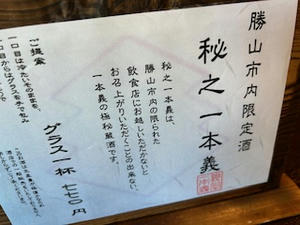 勝山市内限定酒
秘之一本義
秘之一本義は、
勝山市内の限られた
飲食店にお越しいただかないと
お召上がりいただくことの出来ない、
一本義の極秘蔵酒です。
グラス一杯 七七〇円
ご提案
一口目は冷たいそのままを、